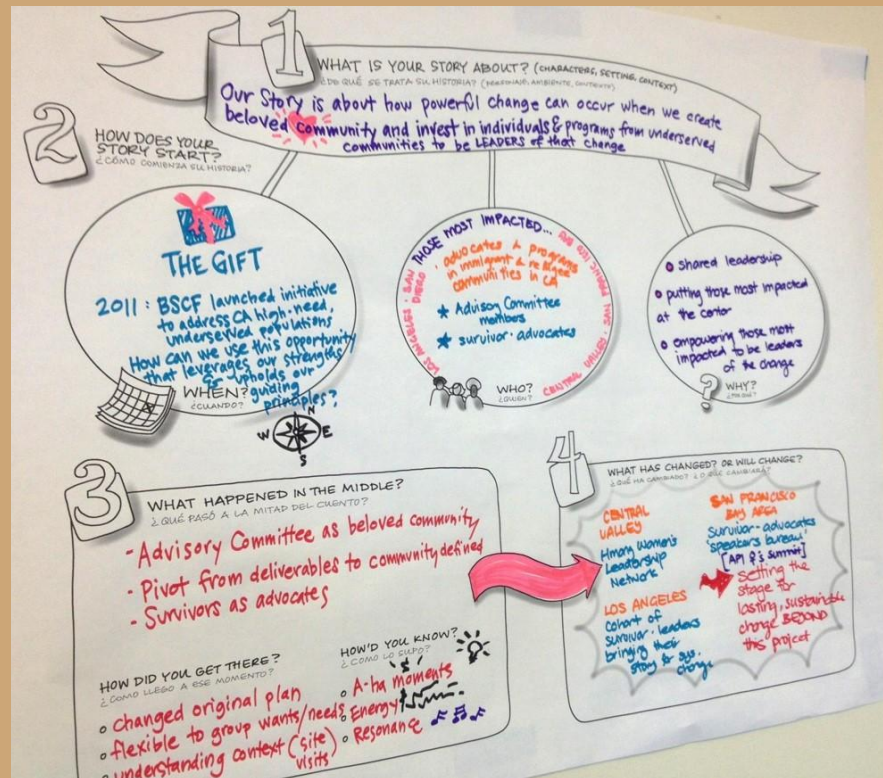 1
WHAT IS YOUR STORY ABOUT? (CHARACTERS, SETTING, CONTEXT)
¿DE QUÉ SE TRATA SU HISTORIA? (PERSONAJE, AMBIENTE, CONTEXTO)
Our Story is about how powerful change can occur when we create
beloved community and invest in individuals & programs from underserved
communities to be LEADERS of that change
2
HOW DOES YOUR
STORY START?
¿CÓMO COMIENZA SU HISTORIA?
THE GIFT
2011: BSCF launched initiative
to address CA high-need,
underserved populations
How can we use this opportunity
that leverages our strengths
& upholds our
guiding
principles?
WHEN?
¿CUANDO?
N
W E
S
THOSE MOST IMPACTED...
LOS ANGELES · SAN DIEGO ·
CENTRAL VALLEY ·
· advocates & programs
in immigrant & refugee
communities in CA
★ Advisory Committee
members
★ survivor-advocates
WHO?
¿QUIEN?
• shared leadership
• putting those most impacted
at the center
• empowering those most
impacted to be leaders
of the change
?
WHY?
¿POR QUÉ?
3
WHAT HAPPENED IN THE MIDDLE?
¿QUÉ PASÓ A LA MITAD DEL CUENTO?
- Advisory Committee as beloved community
- Pivot from deliverables to community defined
- Survivors as advocates
HOW DID YOU GET THERE?
¿COMO LLEGO A ESE MOMENTO?
• changed original plan
• flexible to group wants/needs
• understanding context (site
visits)
HOW'D YOU KNOW?
¿COMO LO SUPO?
• A-ha moments
• Energy
• Resonance
4
WHAT HAS CHANGED? OR WILL CHANGE?
¿QUÉ HA CAMBIADO? ¿LO QUE CAMBIARÁ?
CENTRAL
VALLEY
Hmong Women's
Leadership
Network
LOS ANGELES
cohort of
survivor-leaders
bringing their
story for sys.
change
SAN FRANCISCO
BAY AREA
survivor-advocates
'speakers bureau'
[API summit]
setting the
stage for
lasting, sustainable
change BEYOND
this project